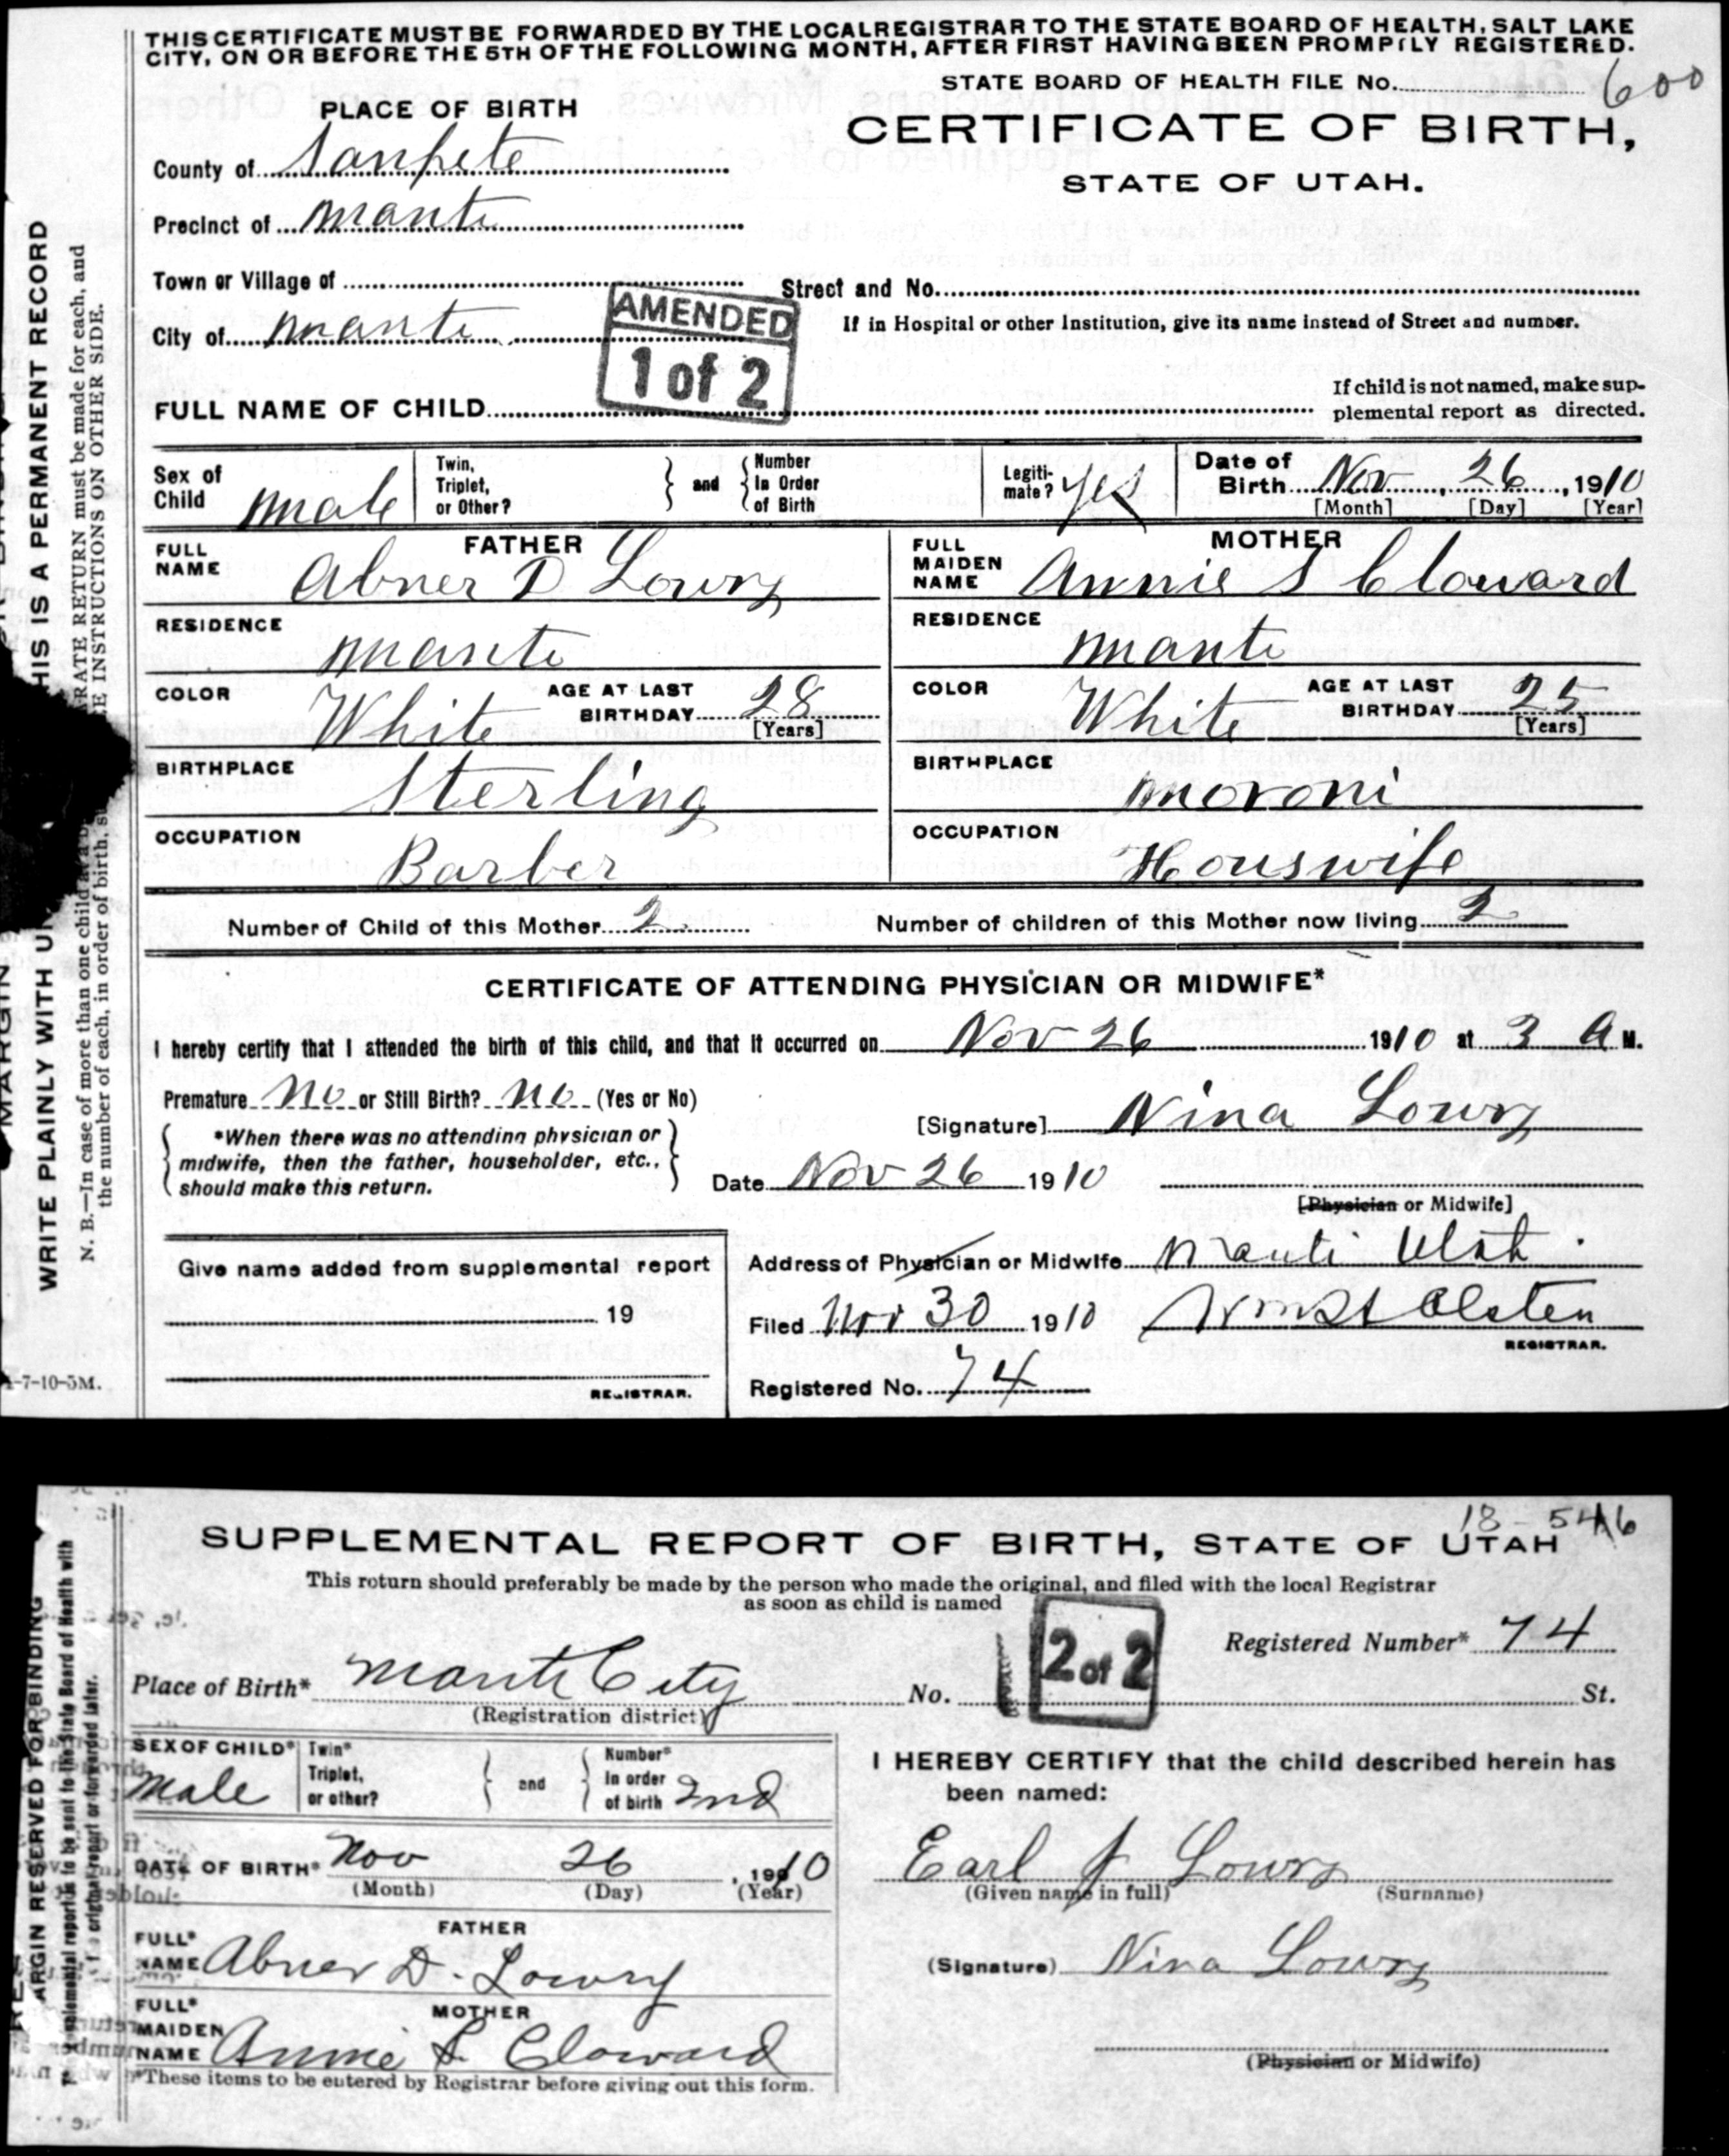 THIS CERTIFICATE MUST BE FORWARDED BY THE LOCAL REGISTRAR TO THE STATE BOARD OF HEALTH, SALT LAKE
CITY, ON OR BEFORE THE 5TH OF THE FOLLOWING MONTH, AFTER FIRST HAVING BEEN PROMPTLY REGISTERED.
STATE BOARD OF HEALTH FILE No. 600
PLACE OF BIRTH
CERTIFICATE OF BIRTH,
STATE OF UTAH.
County of Sanpete
Precinct of Manti
Town or Village of
Street and No.
City of Manti
If in Hospital or other Institution, give its name instead of Street and number.
AMENDED
1 of 2
FULL NAME OF CHILD
If child is not named, make sup-
plemental report as directed.
Sex of Child Male
Twin, Triplet, or Other?
and
Number In Order of Birth
Legiti-mate? Yes
Date of Birth Nov, 26, 1910
[Month] [Day] [Year]
FATHER
FULL NAME Abner D Lowry
MOTHER
FULL MAIDEN NAME Annie S Cloward
RESIDENCE Manti
RESIDENCE Manti
COLOR White AGE AT LAST BIRTHDAY 28 [Years]
COLOR White AGE AT LAST BIRTHDAY 25 [Years]
BIRTHPLACE Sterling
BIRTHPLACE Moroni
OCCUPATION Barber
OCCUPATION Houswife
Number of Child of this Mother 2
Number of children of this Mother now living 2
CERTIFICATE OF ATTENDING PHYSICIAN OR MIDWIFE*
I hereby certify that I attended the birth of this child, and that it occurred on Nov 26 1910 at 3 A M.
Premature No or Still Birth? No (Yes or No)
*When there was no attending physician or
midwife, then the father, householder, etc.,
should make this return.
[Signature] Nina Lowry
Date Nov 26 1910
[Physician or Midwife]
Give name added from supplemental report
19
REGISTRAR.
Address of Physician or Midwife Manti Utah.
Filed Nov 30 1910
REGISTRAR.
Registered No. 74
THIS IS A PERMANENT RECORD
WRITE PLAINLY WITH
MARGIN
N. B.—In case of more than one child
RATE RETURN must be made for each, and
the number of each, in order of birth,
INSTRUCTIONS ON OTHER SIDE.
-7-10-5M.
18-546
SUPPLEMENTAL REPORT OF BIRTH, STATE OF UTAH
This return should preferably be made by the person who made the original, and filed with the local Registrar
as soon as child is named
2 of 2
Registered Number* 74
Place of Birth* Manti City
No. St.
(Registration district)
SEX OF CHILD* Male
Twin* Triplet, or other?
and
Number* In order of birth 2nd
I HEREBY CERTIFY that the child described herein has
been named:
DATE OF BIRTH* Nov 26, 1910
(Month) (Day) (Year)
Earl J Lowry
(Given name in full) (Surname)
FATHER
FULL* NAME Abner D. Lowry
(Signature) Nina Lowry
MOTHER
FULL* MAIDEN NAME Annie S. Cloward
(Physician or Midwife)
*These items to be entered by Registrar before giving out this form.
ARGIN RESERVED FOR BINDING
reports to be sent to the State Board of Health with
original report or forwarded later.